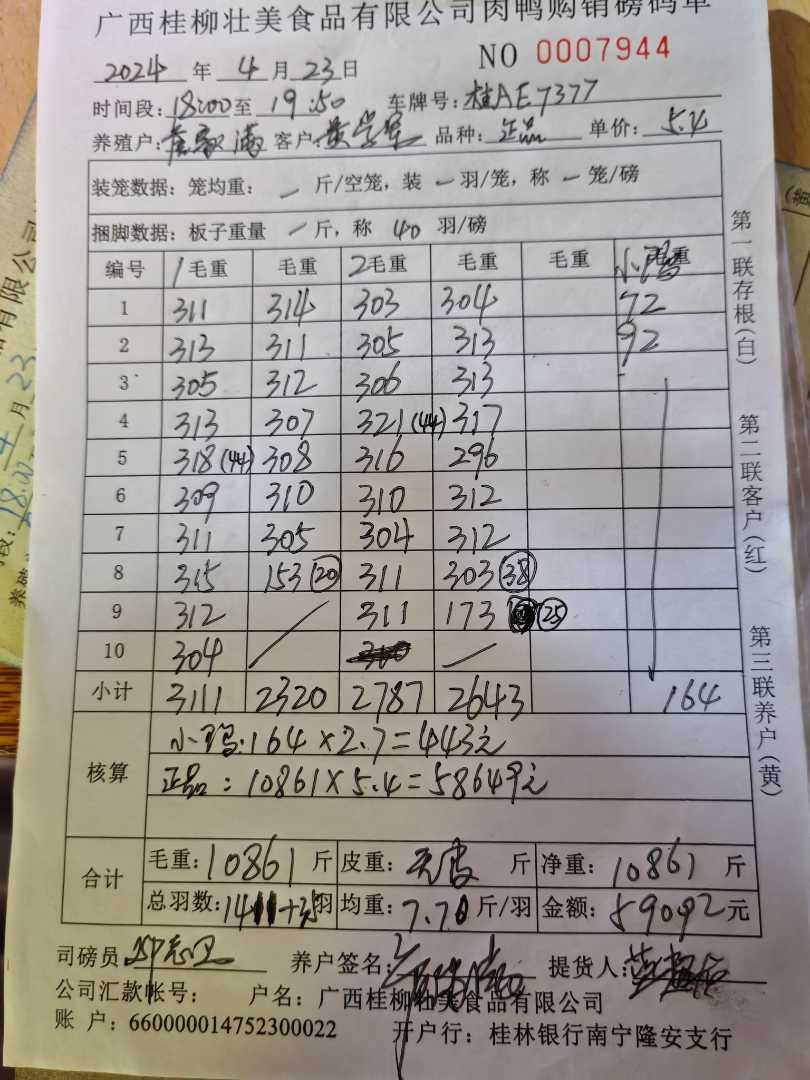 广西桂柳壮美食品有限公司肉鸭购销磅码单
NO 0007944
2024 年 4 月 23 日
时间段: 18:00 至 19:50 车牌号: 桂AE7377
养殖户: 客户: 黄 品种: 正品 单价: 5.4
装笼数据: 笼均重: — 斤/空笼, 装 — 羽/笼, 称 — 笼/磅
捆脚数据: 板子重量 — 斤, 称 40 羽/磅
编号 1毛重 毛重 2毛重 毛重 毛重 毛重
1 311 314 303 304 72
2 313 311 305 313 92
3 305 312 306 313
4 313 307 321(44) 317
5 318(44) 308 316 296
6 309 310 310 312
7 311 305 304 312
8 315 153(20) 311 303(38)
9 312 / 311 173 (25)
10 304 —
小计 3111 2320 2787 2643 164
核算
小鸭:164×2.7=443元
正品:10861×5.4=58649元
合计
毛重: 10861 斤 皮重: 斤 净重: 10861 斤
总羽数: 羽 均重: 7.70 斤/羽 金额: 59092 元
司磅员 养户签名: 提货人:
公司汇款帐号: 户名: 广西桂柳壮美食品有限公司
账 户: 660000014752300022 开户行: 桂林银行南宁隆安支行
第一联存根(白)
第二联客户(红)
第三联养户(黄)